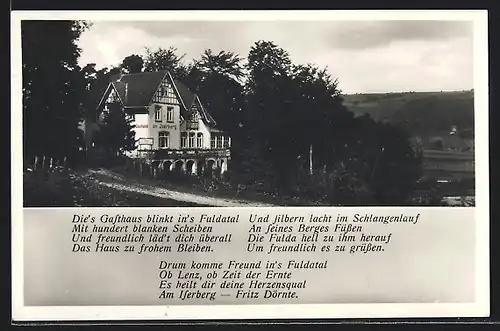 am Iserberg
Die's Gasthaus blinkt in's Fuldatal
Mit hundert blanken Scheiben
Und freundlich läd't dich überall
Das Haus zu frohem Bleiben.
Und silbern lacht im Schlangenlauf
An seines Berges Füßen
Die Fulda hell zu ihm herauf
Um freundlich es zu grüßen.
Drum komme Freund in's Fuldatal
Ob Lenz, ob Zeit der Ernte
Es heilt dir deine Herzensqual
Am Iserberg — Fritz Dörnte.